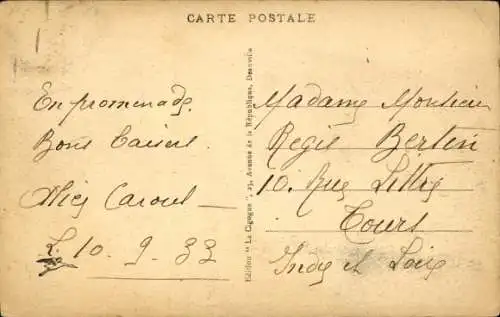 CARTE POSTALE
En promenade.
Bons baisers
Alice Carout
L. 10_9_33
Edition "La Cigogne", 23, Avenue de la République, Deauville
Madame Monsieur
Regis Bertin
10. Rue Littré
Tours
Indre et Loire